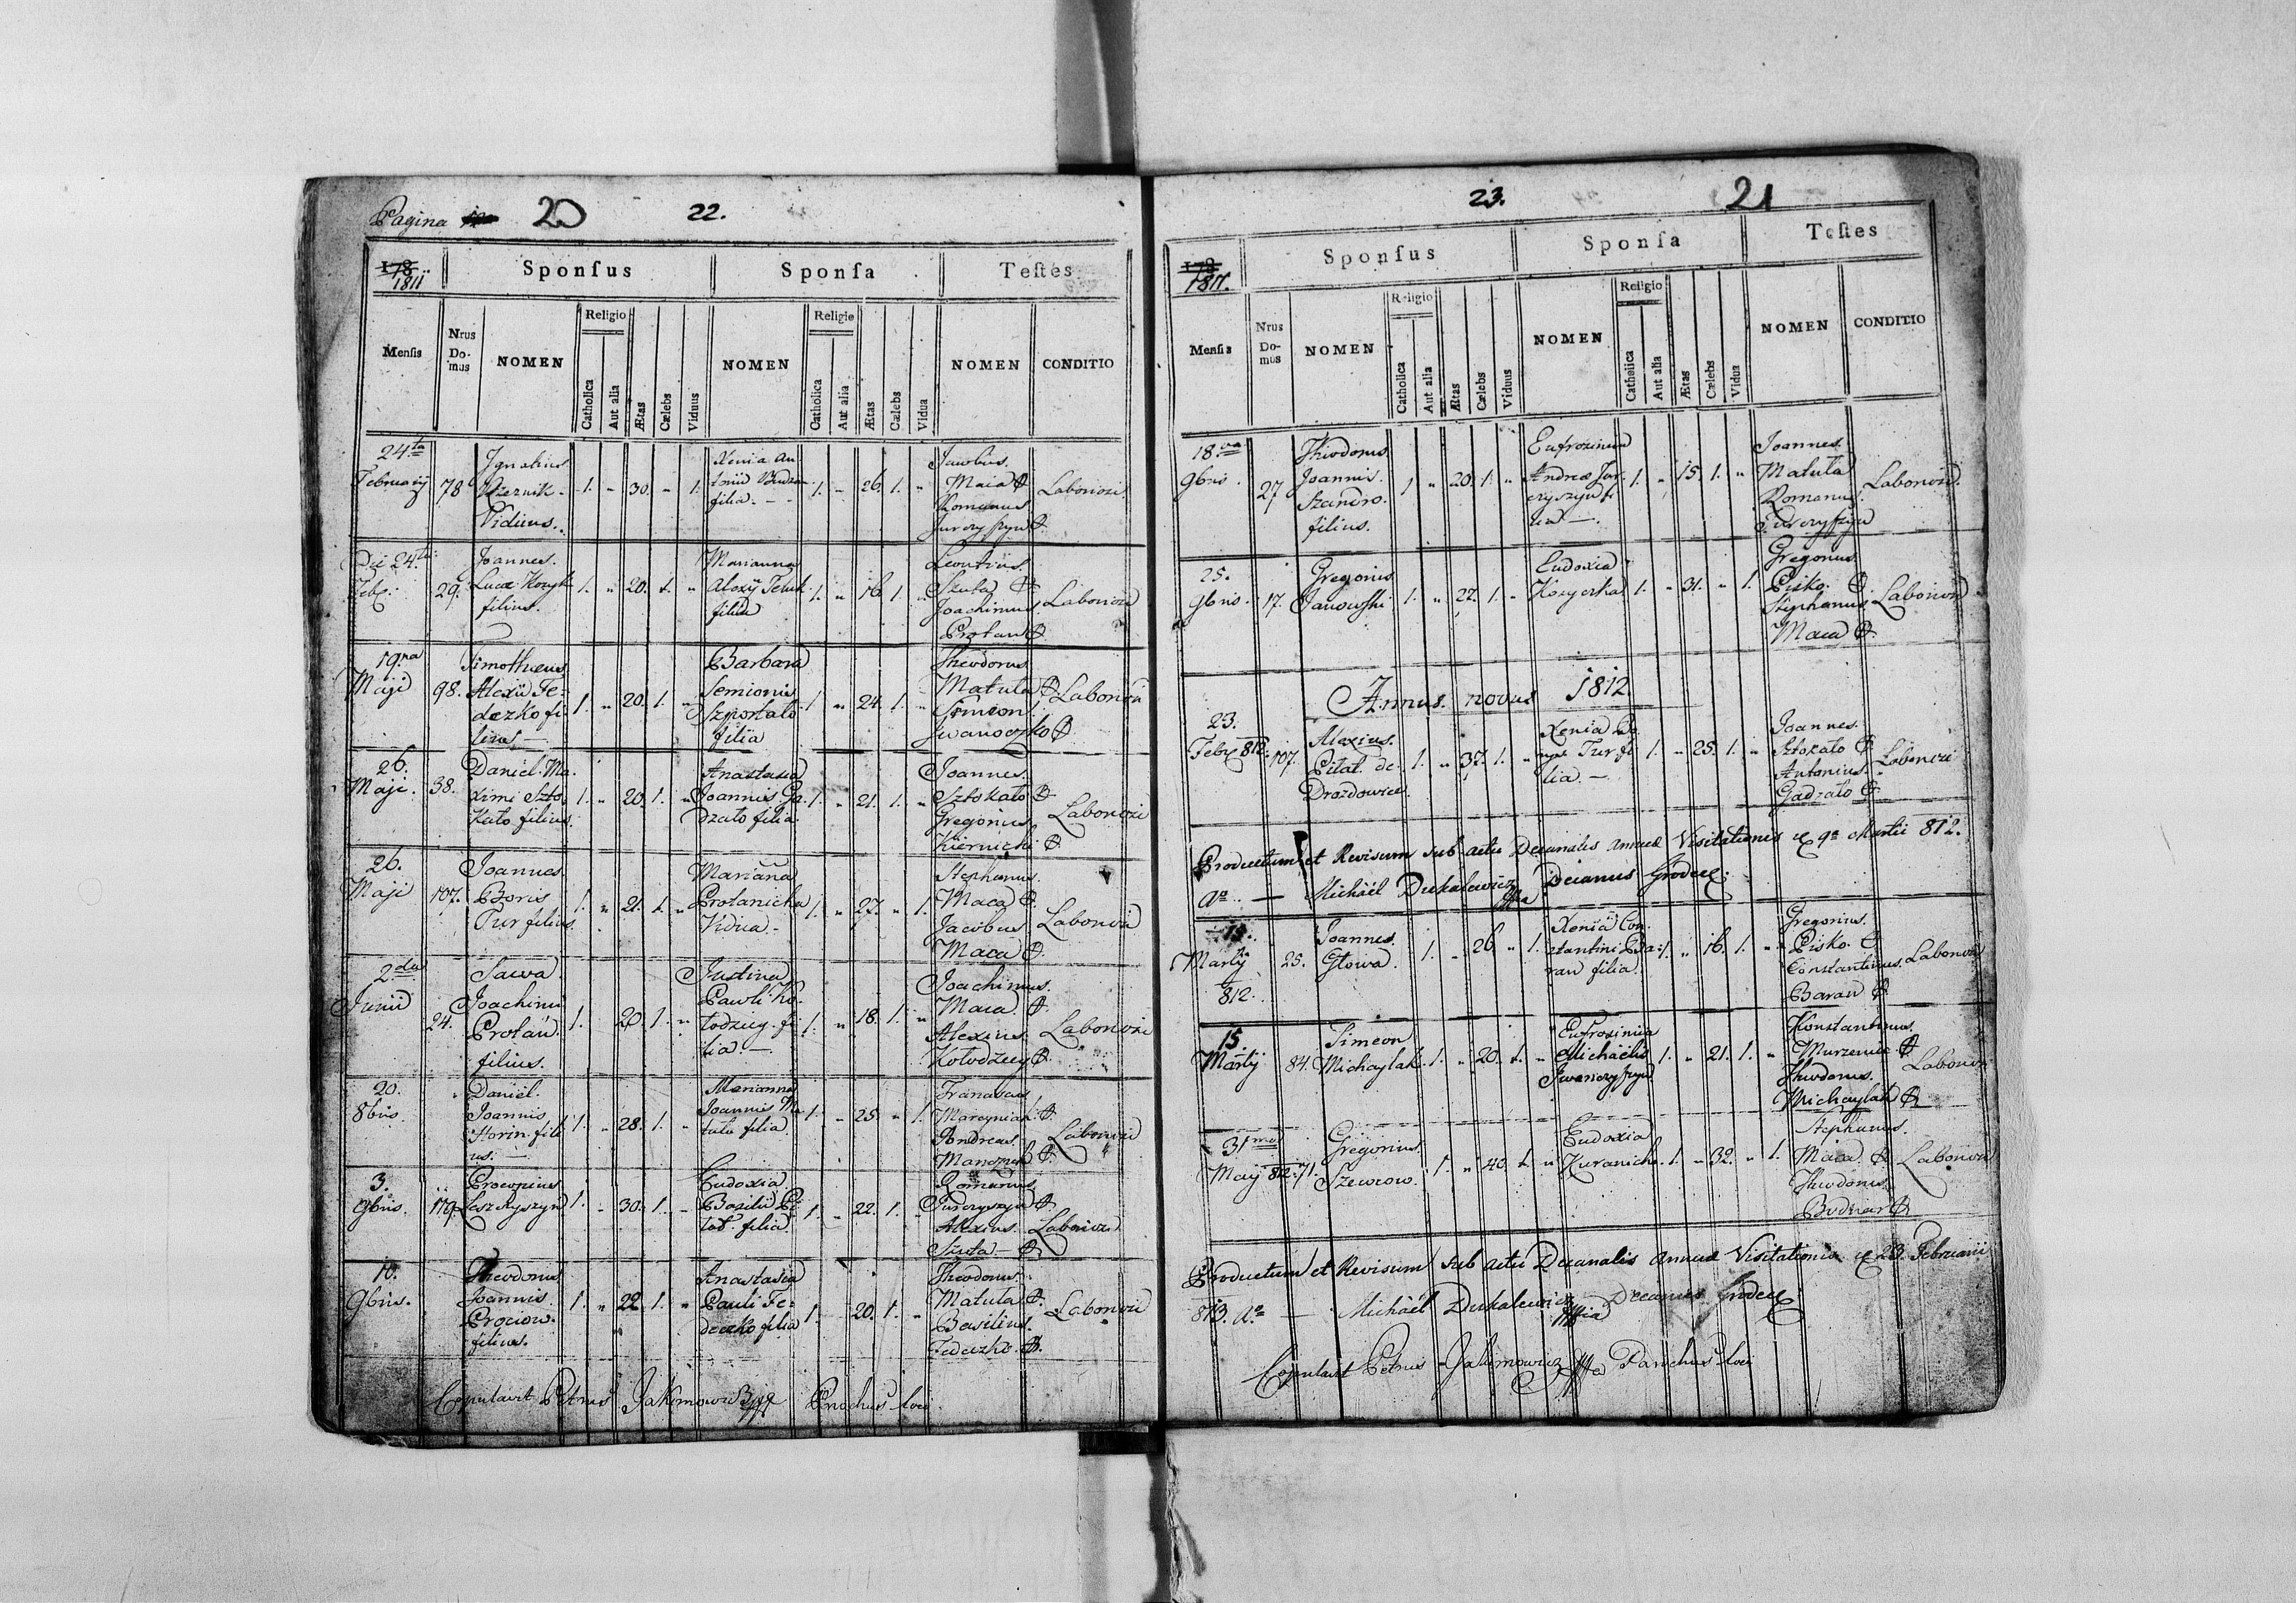 Pagina 20 22.
1811
Sponsus Sponsa Testes
Mensis Nrus Do-mus NOMEN Religio Catholica Aut alia Ætas Cælebs Viduus NOMEN Religio Catholica Aut alia Ætas Cælebs Vidua NOMEN CONDITIO
24ta Februarij 78
Ignatius
Viduus.
1. " 30. " 1.
Xenia An
tonii
filia
1. " 26. 1. "
Jacobus
Maca
Romanus
Jurczyszyn
Laboriosi
Die 24ta Feb. 29.
Joannes.
Lucæ
filius.
1. " 20. 1. "
Marianna
Alexij
filia
1. " 16. 1. "
Leontius
Szuta
Joachimus
Protan
Laboriosi
19na Maji 98.
Timotheus
Alexii Fe-
deczko fi-
lius
1. " 20. 1. "
Barbara
Semionis
filia
1. " 24. 1. "
Theodorus
Matuta
Simeon
Iwanoczko
Laboriosi
26. Maji. 38.
Daniel Ma-
ximi Szto-
kato filius.
1. " 20. 1. "
Anastasia
Joannis Ga-
dzato filia
1. " 21. 1. "
Joannes.
Sztokato
Gregorius
Kiernicki
Laboriosi
26. Maji 107.
Joannes
Boris
Tur filius.
1. " 21. 1. "
Mariana
Protanicha
Vidua.
1. " 27. " 1.
Stephanus.
Maca
Jacobus
Maca
Laboriosi
2da Junii 24.
Sawa
Joachimi
Protan
filius.
1. 20. 1. "
Justina
Pawli Ko-
lodziey. fi-
lia.
1. " 18. 1. "
Joachimus.
Maca
Alexius
Kolodziey
Laboriosi
20. 8bris
Daniel.
Joannis
Horin fili
us.
1. " 28. 1. "
Marianna
Joannis Ma
tula filia
1. " 25. " 1.
Marcyniak
Andreas
Laboriosi
3. 9bris. 119.
Procopius
Leszkyszyn
1. " 30. 1. "
Eudoxia
Basilii Pi-
tat filia
1. " 22. 1. "
Romanus
Jurczyszyn
Alexius.
Szuta
Laboriosi
10. 9bris.
Theodorus
Joannis
Prociow
filius.
1. " 22. 1. "
Anastasia
Pauli Fe-
deczko filia
1. " 20. 1. "
Theodorus
Matuta
Basilius.
Fedeczko
Laboriosi
Copulavit Petrus Jakimowicz Parochus loci
23. 21
1811.
Sponsus Sponsa Testes
Mensis Nrus Do-mus NOMEN Religio Catholica Aut alia Ætas Cælebs Viduus NOMEN Religio Catholica Aut alia Ætas Cælebs Vidua NOMEN CONDITIO
18va 9bris. 27
Theodorus
Joannis
Szandro.
filius.
1 " 20. 1. "
Eufrosinia
Andreæ Jur-
czyszyn fi
lia
1. " 15. 1. "
Joannes.
Matuta
Romanus.
Jurczyszyn
Laboriosi.
25. 9bris. 17.
Gregorius
Janowski
1. " 22. 1. "
Eudoxia
1. " 31. " 1.
Gregorius
Pisko.
Stephanus
Maca
Laboriosi
Annus novus 1812.
23. Feb. 812. 107.
Alexius.
Pitat de
Drozdowice.
1. " 37. 1. "
Xenia
Tur fi
lia.
1. " 25. 1. "
Joannes.
Sztokato
Antonius.
Gadzato
Laboriosi
Productum et Revisum sub actu Decanalis annuæ Visitationis 9a Martii 812.
Michaël Dukalewicz Decanus Grodec.
15. Martij 812. 25.
Joannes.
Glowa.
1. " 26 " 1.
Xenia Con-
stantini Ba-
ran filia.
1. " 16. 1. "
Gregorius.
Pisko.
Constantinus.
Baran
Laboriosi
15. Martij 84.
Simeon
Michaylak
1. " 20. 1. "
Eufrosinia
Michaëlis
1. " 21. 1. "
Konstantinus.
Theodorus.
Michaylak
Laboriosi
31ma Maij 812. 71.
Gregorius
Szewcow.
1. " 40. 1. "
Eudoxia
Kuranicha
1. " 32. " 1.
Stephanus.
Maca
Theodorus
Bodnar
Laboriosi
Productum et Revisum sub actu Decanalis annuæ Visitationis 23. Februarii
813. Michaël Dukalewicz Decanus Grodec
Copulavit Petrus Jakimowicz Parochus loci